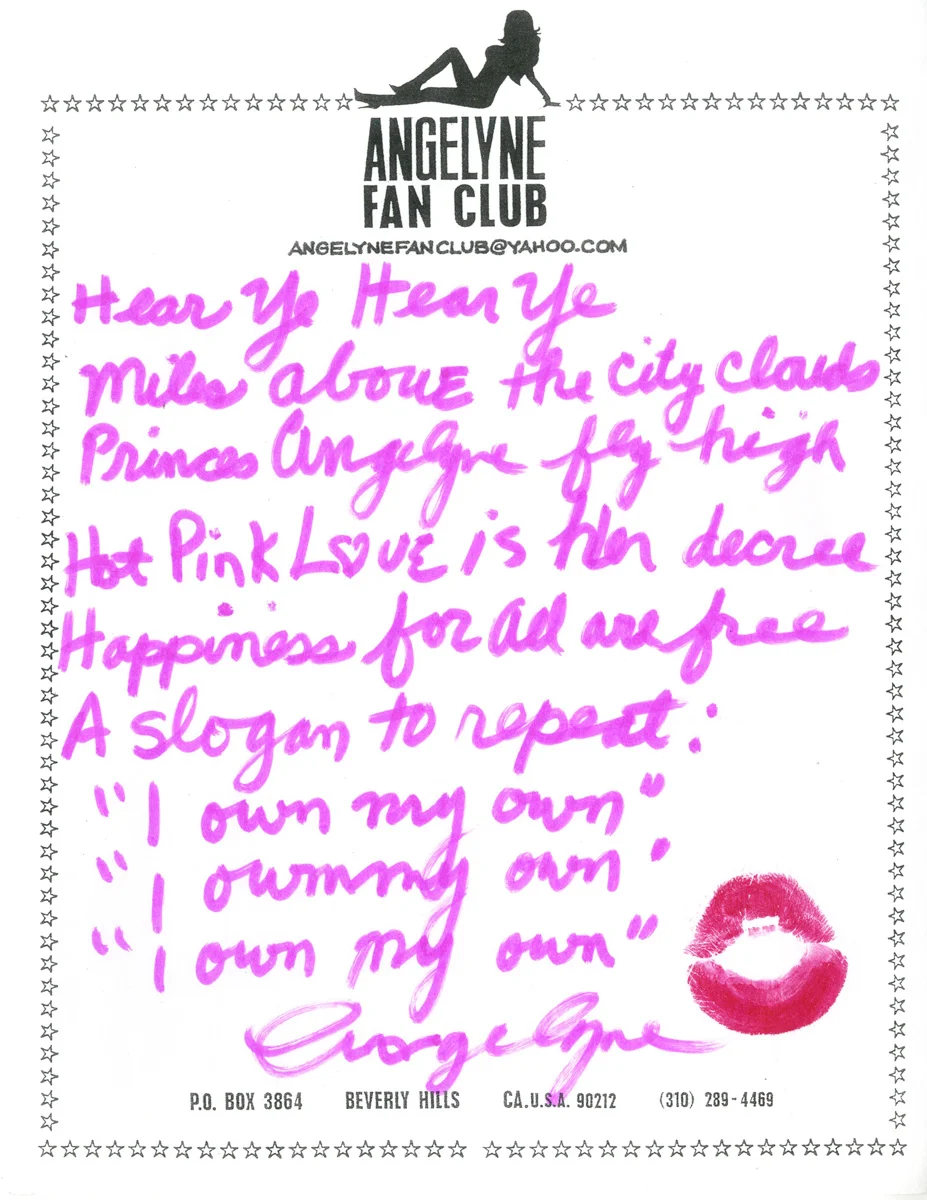 ANGELYNE
FAN CLUB
ANGELYNEFANCLUB@YAHOO.COM
Hear Ye Hear Ye
Miles above the city clouds
Princes Angelyne fly high
Hot Pink Love is Her decree
Happiness for all are free
A slogan to repeat:
"I own my own"
"I own my own"
"I own my own"
Angelyne
P.O. BOX 3864 BEVERLY HILLS CA.U.S.A. 90212 (310) 289-4469